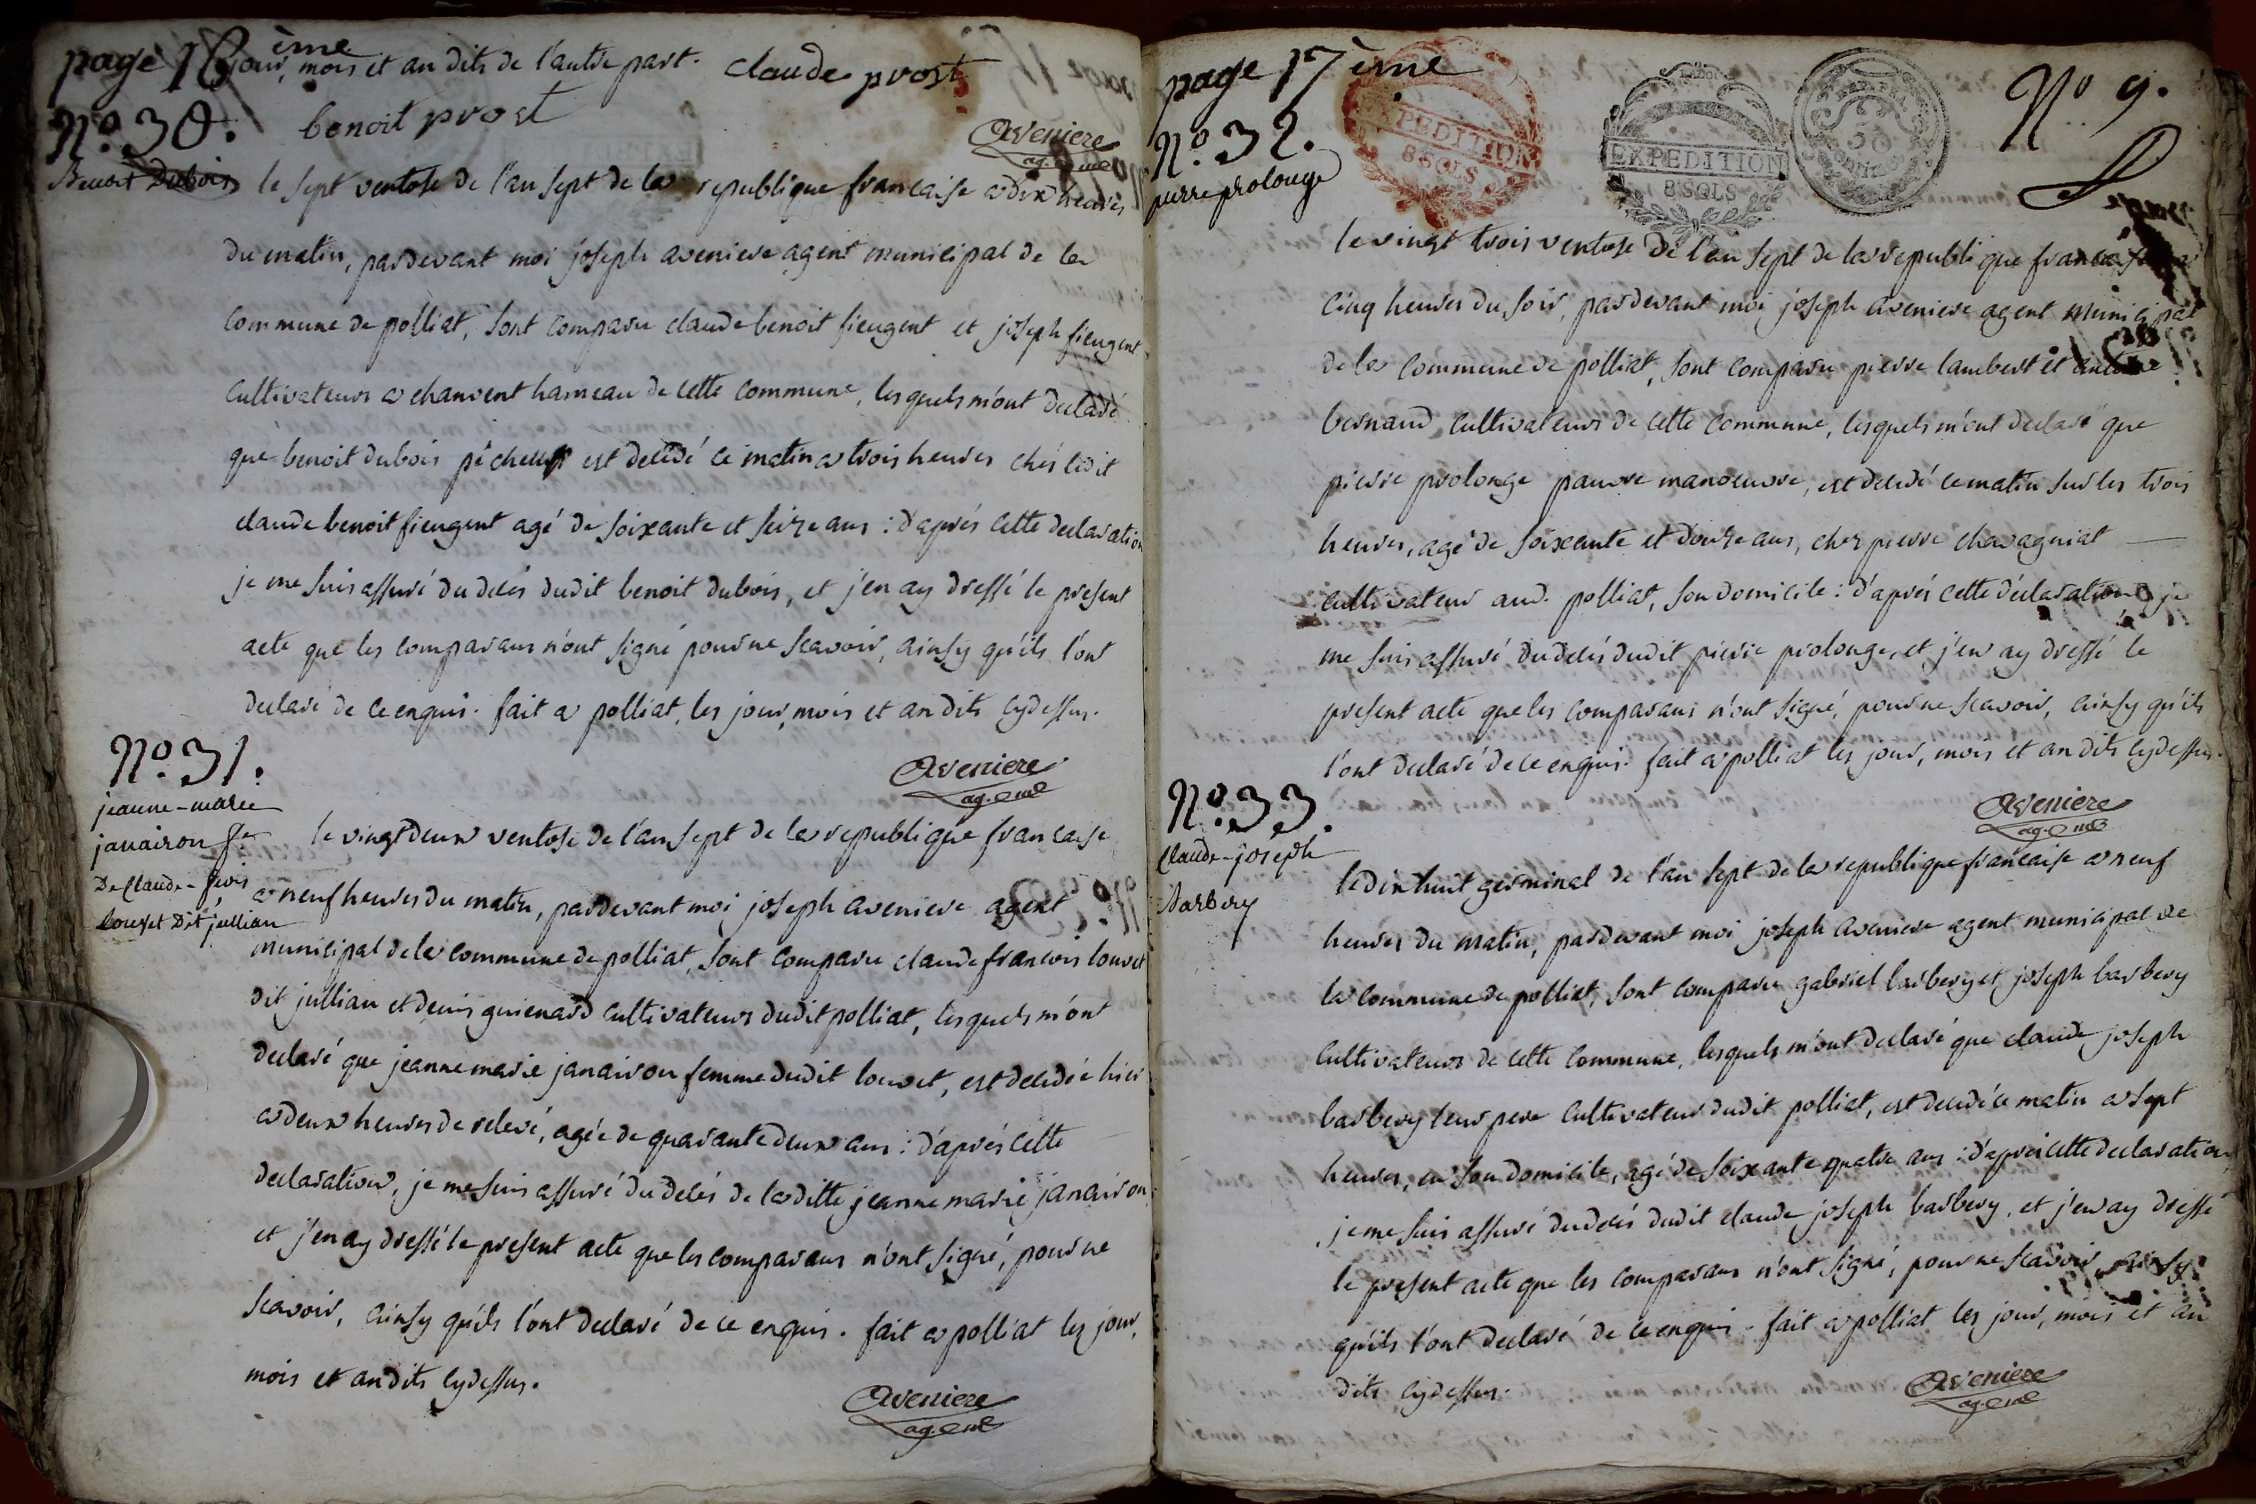 page 16ème
jour, mois et an dits de l'autre part. claude prost
N.º 30. benoit prost
Aveniere
ag. m.al
Benoit Dubois
le sept ventose de l'an sept de la republique francaise a dix heures
du matin, pardevant moi joseph aveniere agent municipal de la
commune de polliat, sont comparu claude benoit fieugent et joseph fieugent
cultivateurs a chanvent hameau de cette commune, lesquels m'ont declaré
que benoit dubois pêcheur est decedé ce matin a trois heures chés ledit
claude benoit fieugent agé de soixante et seize ans : d'aprés cette declaration
je me suis assuré du decés dudit benoit dubois, et j'en ay dressé le present
acte que les comparans n'ont signé pour ne scavoir, ainsy qu'ils l'ont
declaré de ce enquis. fait a polliat, les jour, mois et an dits cydessus.
Aveniere
ag. m.al
N.º 31.
jeanne-marie
janairon f.e
De Claude-f.cois
Louvet Dit jullian
le vingt deux ventose de l'an sept de la republique francaise
a neuf heures du matin, pardevant moi joseph aveniere agent
municipal de la commune de polliat, sont comparu claude francois louvet
dit jullian et denis guienard cultivateurs dudit polliat, lesquels m'ont
declaré que jeanne marie janairon femme dudit louvet, est decedée hier
a deux heures de relevé, agée de quarante deux ans : d'aprés cette
declaration, je me suis assuré du decés de laditte jeanne marie janairon,
et j'en ay dressé le present acte que les comparans n'ont signé, pour ne
scavoir, ainsy qu'ils l'ont declaré de ce enquis. fait a polliat les jour,
mois et an dits cydessus.
Aveniere
ag. m.al
page 17ème
N.º 32.
pierre prolonge
EXPEDITION
8 SOLS
EXPEDITION
8 SOLS
Nº 9.
le vingt trois ventose de l'an sept de la republique francaise a
cinq heures du soir, pardevant moi joseph aveniere agent municipal
de la commune de polliat, sont comparu pierre lambert et antoine
bernaud cultivateurs de cette commune, lesquels m'ont declaré que
pierre prolonge pauvre manoeuvre, est decedé ce matin sur les trois
heures, agé de soixante et douze ans, chez pierre chavagniat
cultivateur aud. polliat, son domicile : d'aprés cette déclaration je
me suis assuré du decés dudit pierre prolonge, et j'en ay dressé le
present acte que les comparans n'ont signé, pour ne scavoir, ainsy qu'ils
l'ont declaré de ce enquis. fait a polliat les jour, mois et an dits cydessus.
Aveniere
ag. m.al
N.º 33.
Claude-joseph
Barbery
le dix huit germinal de l'an sept de la republique francaise a neuf
heures du matin, pardevant moi joseph aveniere agent municipal de
la commune de polliat, sont comparu gabriel barbery et joseph barbery
cultivateurs de cette commune, lesquels m'ont declaré que claude joseph
barbery leur pere cultivateur dudit polliat, est decedé ce matin a sept
heures, en son domicile, agé de soixante quatre ans : d'aprés cette declaration,
je me suis assuré du decés dudit claude joseph barbery, et j'en ay dressé
le present acte que les comparans n'ont signé, pour ne scavoir, ainsy
qu'ils l'ont declaré de ce enquis. fait a polliat les jour, mois et an
dits cydessus.
Aveniere
ag. m.al